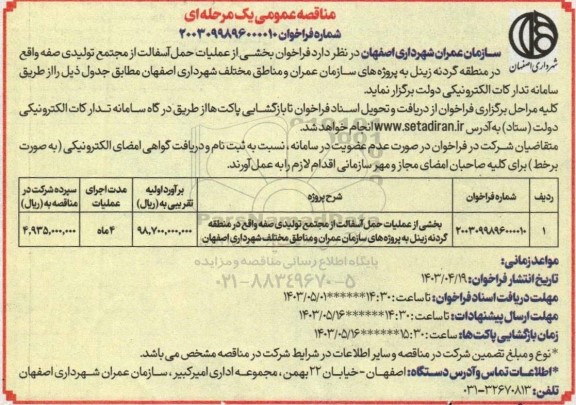 مناقصه عمومی یک مرحله ای
شماره فراخوان ۲۰۰۳۰۹۹۸۹۶۰۰۰۰۱۰
شهرداری اصفهان
سازمان عمران شهرداری اصفهان در نظر دارد فراخوان بخشی از عملیات حمل آسفالت از مجتمع تولیدی صفه واقع
در منطقه گردنه زینل به پروژه های سازمان عمران و مناطق مختلف شهرداری اصفهان مطابق جدول ذیل را از طریق
سامانه تدارکات الکترونیکی دولت برگزار نماید.
کلیه مراحل برگزاری فراخوان از دریافت و تحویل اسناد فراخوان تا بازگشایی پاکت ها از طریق درگاه سامانه تدارکات الکترونیکی
دولت (ستاد) به آدرس www.setadiran.ir انجام خواهد شد.
متقاضیان شرکت در فراخوان در صورت عدم عضویت در سامانه ، نسبت به ثبت نام و دریافت گواهی امضای الکترونیکی (به صورت
برخط) برای کلیه صاحبان امضای مجاز و مهر سازمانی اقدام لازم را به عمل آورند.
ردیف | شماره فراخوان | شرح پروژه | برآورد اولیه تقریبی به (ریال) | مدت اجرای عملیات | سپرده شرکت در مناقصه به (ریال)
۱ | ۲۰۰۳۰۹۹۸۹۶۰۰۰۰۱۰ | بخشی از عملیات حمل آسفالت از مجتمع تولیدی صفه واقع در منطقه گردنه زینل به پروژه های سازمان عمران و مناطق مختلف شهرداری اصفهان | ۹۸,۷۰۰,۰۰۰,۰۰۰ | ۴ ماه | ۴,۹۳۵,۰۰۰,۰۰۰
پایگاه اطلاع رسانی مناقصه و مزایده
۰۲۱-۸۸۳۴۹۶۷۰-۵
مواعد زمانی:
تاریخ انتشار فراخوان: ۱۴۰۳/۰۴/۱۹
مهلت دریافت اسناد فراخوان: تا ساعت: ۱۴:۳۰******۱۴۰۳/۰۵/۰۱
مهلت ارسال پیشنهادات: تا ساعت: ۱۴:۳۰******۱۴۰۳/۰۵/۱۶
زمان بازگشایی پاکت ها: ساعت: ۱۵:۳۰******۱۴۰۳/۰۵/۱۶
* نوع و مبلغ تضمین شرکت در مناقصه و سایر اطلاعات در شرایط شرکت در مناقصه مشخص می باشد.
*اطلاعات تماس و آدرس دستگاه: اصفهان - خیابان ۲۲ بهمن ، مجموعه اداری امیرکبیر ، سازمان عمران شهرداری اصفهان
تلفن: ۳۲۶۷۰۸۱۳-۰۳۱